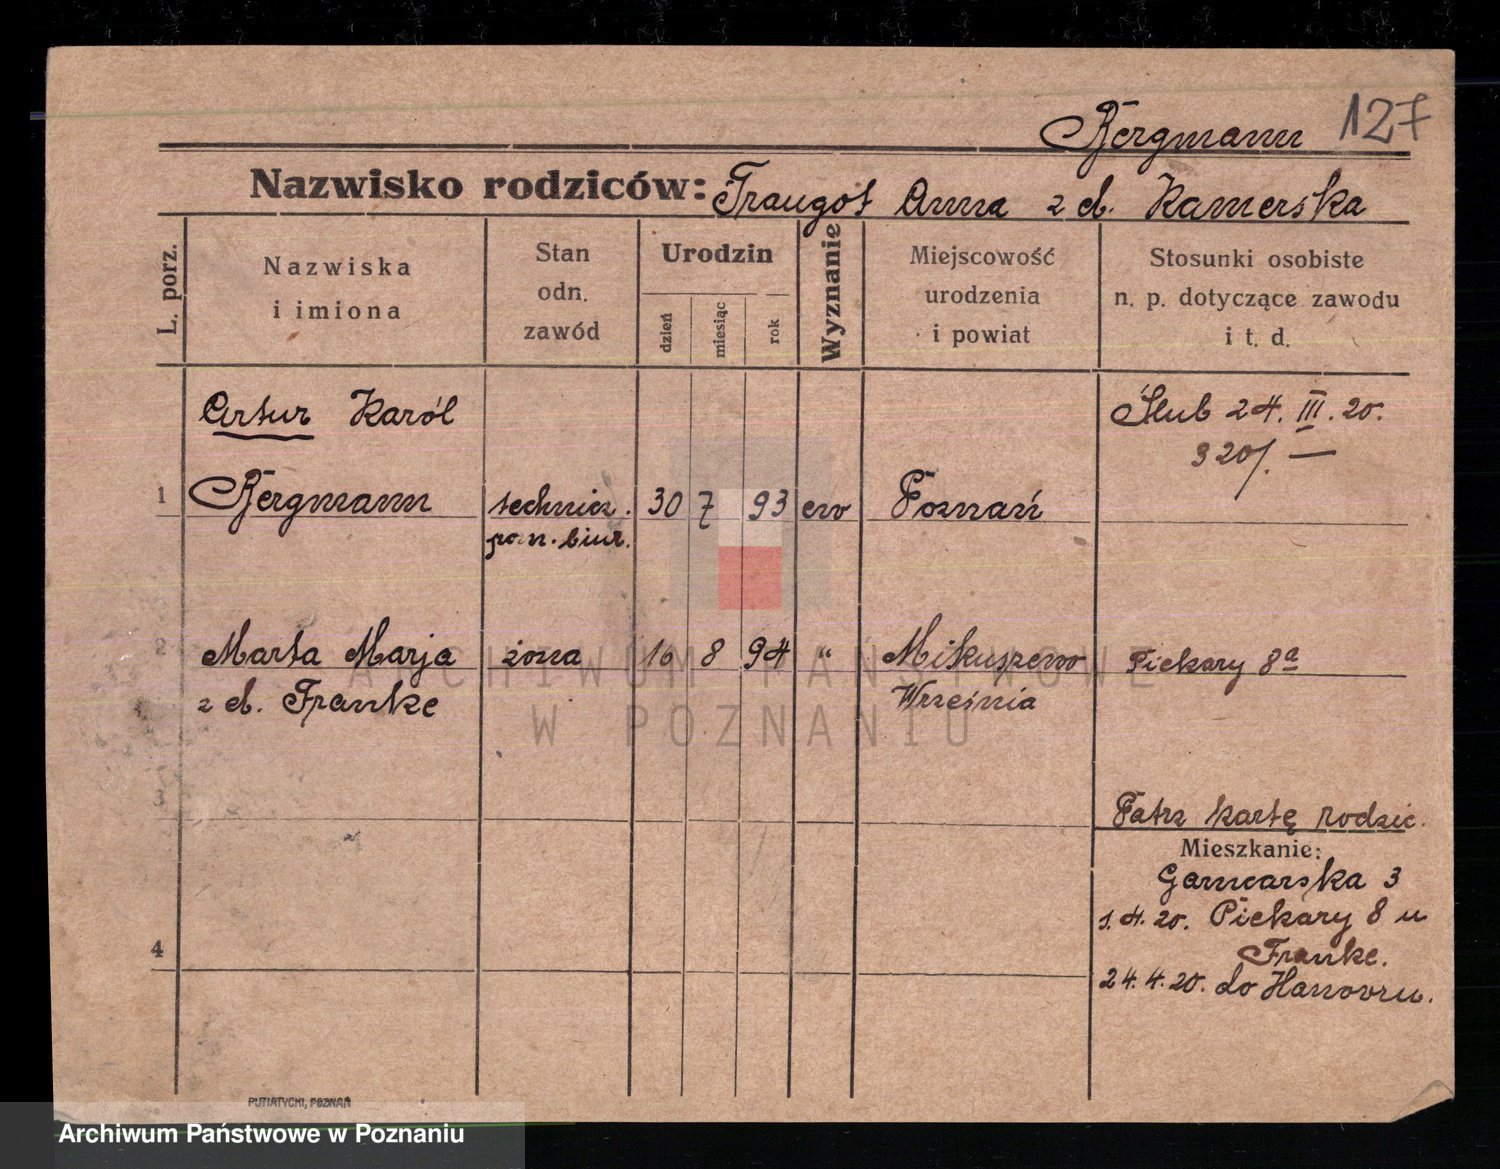 Bergmann 127
Nazwisko rodziców: Traugot Anna z d. Kamerska
L. porz.
Nazwiska
i imiona
Stan
odn.
zawód
Urodzin
dzień
miesiąc
rok
Wyznanie
Miejscowość
urodzenia
i powiat
Stosunki osobiste
n. p. dotyczące zawodu
i t. d.
Artur Karól
Ślub 24. III. 20.
320/. —
1 Bergmann technicz. 30 7 93 ew Poznań
pom. biur.
2 Marta Marja żona 16 8 94 " Mikuszewo Piekary 8a
z d. Franke Września
3
Patrz kartę rodzic.
Mieszkanie:
Garncarska 3
1.4.20. Piekary 8 u
4 Franke.
24.4.20. do Hanovru.
PUTIATYCKI, POZNAŃ
ARCHIWUM PAŃSTWOWE
W POZNANIU
Archiwum Państwowe w Poznaniu